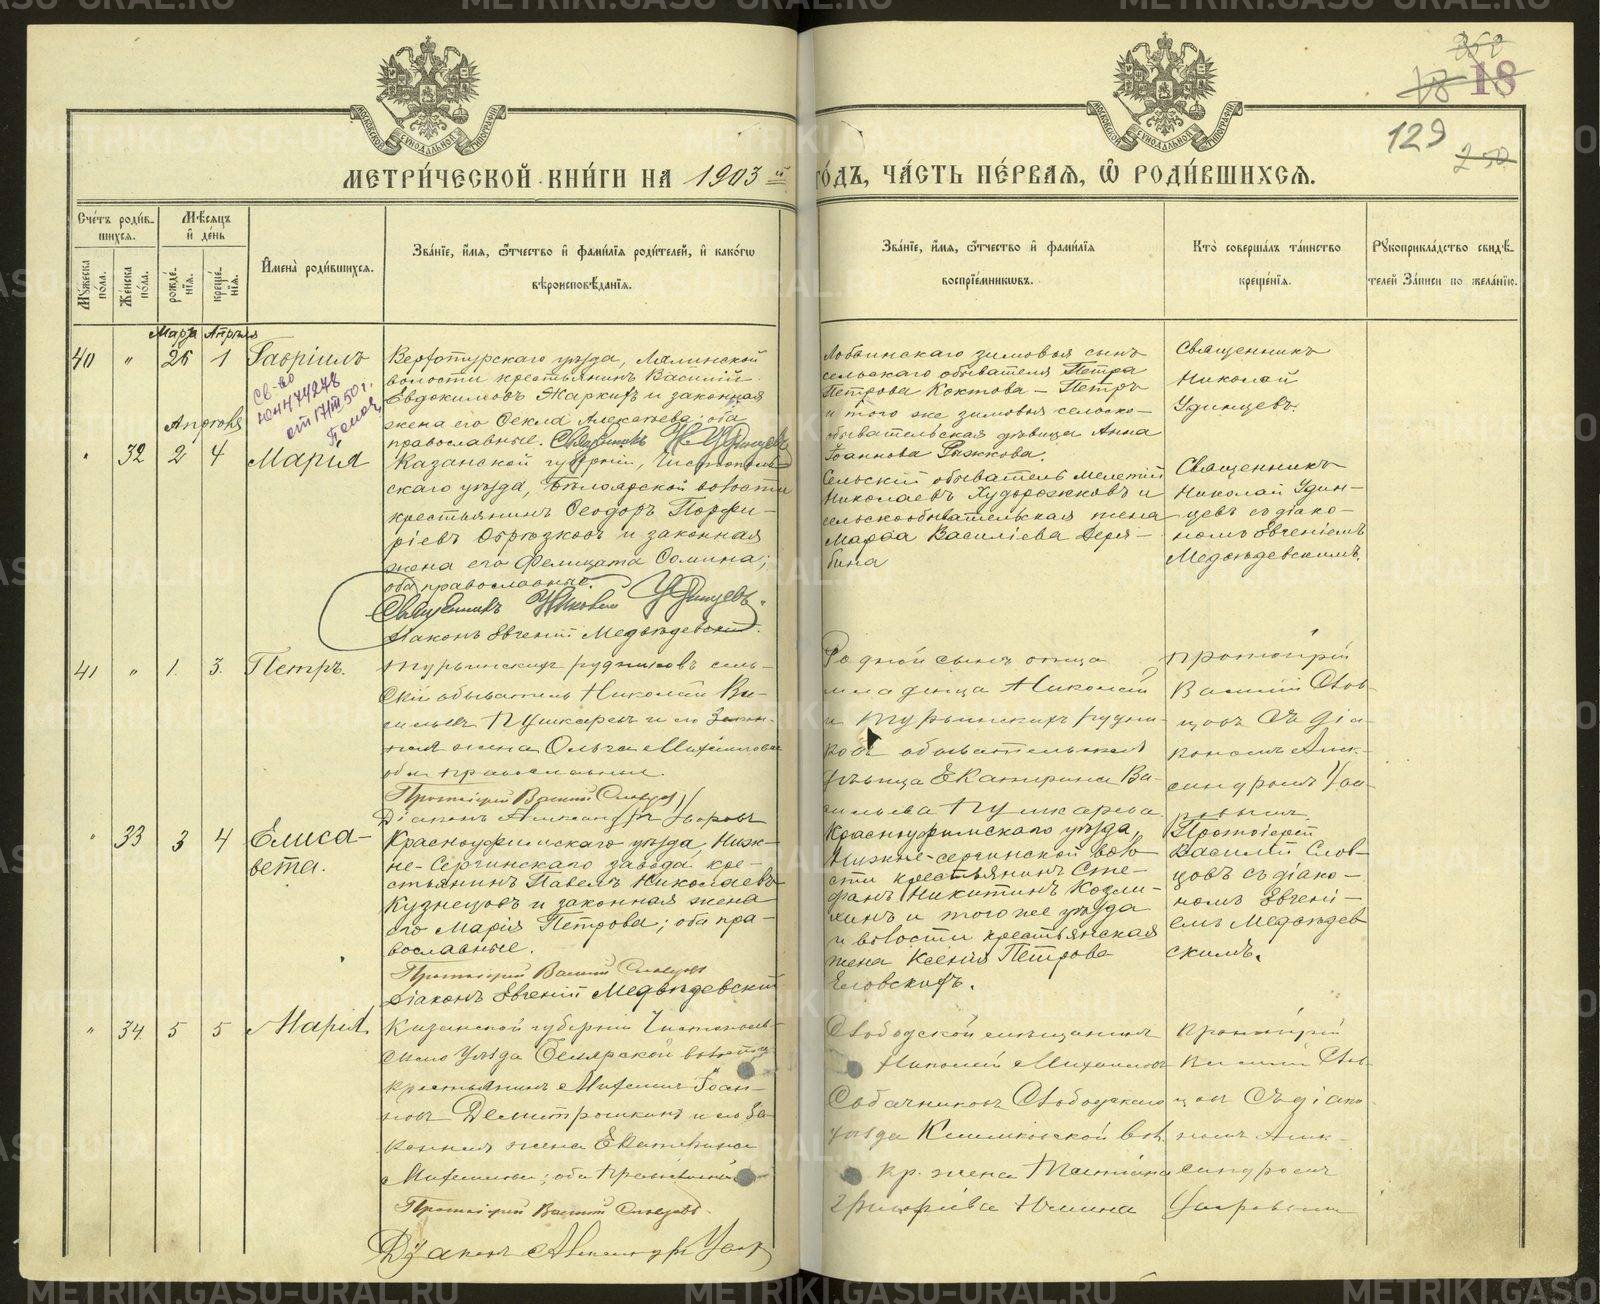 МЕТРИ́ЧЕСКОЙ КНИ́ГИ НА 1903 й
ГО́ДЪ, ЧА́СТЬ ПЕ́РВАЯ, Ѡ҆ РОДИ́ВШИХСЯ.
18
129
250
Сче́тъ роди́в-
шихся.
Мѣ́сяцъ
и҆ де́нь
Мꙋ́жеска
пола.
Же́нска
по́ла.
рожде́-
нїѧ.
креще́-
нїѧ.
И҆мена̀ роди́вшихся.
Зва́нїе, и҆́мѧ, ѻ҆́тчество и҆ фами́лїѧ роди́телей, и҆ како́гѡ
вѣроисповѣ́данїѧ.
Зва́нїе, и҆́мѧ, ѻ҆́тчество и҆ фами́лїѧ
воспрїе́мникѡвъ.
Кто̀ соверша́лъ та́инство
креще́нїѧ.
Рꙋкоприкла́дство свидѣ́-
телей За́писи по жела́нїю.
Марта Апрѣля
40 " 26 1 Гавріилъ
Верхотурскаго уѣзда, Лялинской
волости крестьянинъ Василій
Евдокимовъ Жаркихъ и законная
жена его Ѳекла Алексѣева; оба
православные. Священникъ Н. Удинцевъ
Лобвинскаго зимовья сынъ
сельскаго обывателя Петра
Петрова Коктова – Петръ
и того же зимовья сельско-
обывательская дѣвица Анна
Іоаннова Рыжкова.
Священникъ
Николай
Удинцевъ.
св-во
Апрѣля
" 32 2 4 Марія
Казанской губерніи, Чистополь-
скаго уѣзда, Бѣлоярской волости
крестьянинъ Ѳеодоръ Порфи-
ріевъ Обрѣзковъ и законная
жена его Фелицата Ѳомина;
оба православные.
Священникъ Николай Удинцевъ.
Діаконъ Евгеній Медвѣдевскій.
Сельскій обыватель Мелетій
Николаевъ Худорожковъ и
сельскообывательская жена
Марѳа Василіева Деря-
бина
Священникъ
Николай Удин-
цевъ съ діако-
номъ Евгеніемъ
Медвѣдевскимъ.
41 " 1. 3. Петръ.
Турьинскихъ рудниковъ сель-
скій обыватель Николай Ва-
сильевъ Пушкаревъ и его закон-
ная жена Ольга Михаилова
оба православные.
Протоіерей Василій Словцовъ
Діаконъ Александръ Уваровъ
Родной сынъ отца
младенца Николай
и Турьинскихъ рудни-
ковъ обывательская
дѣвица Екатерина Ва-
сильева Пушкарева
Протоіерей
Василій Слов-
цовъ съ діа-
кономъ Алек-
сандромъ Ува-
ровымъ.
" 33 3 4 Елиса-
вета.
Красноуфимскаго уѣзда, Ниж-
не-Сергинскаго завода кре-
стьянинъ Павелъ Николаевъ
Кузнецовъ и законная жена
его Марія Петрова; оба пра-
вославные.
Протоіерей Василій Словцовъ
Діаконъ Евгеній Медвѣдевскій
Красноуфимскаго уѣзда,
Нижне-сергинской воло-
сти крестьянинъ Сте-
фанъ Никитинъ Козли-
хинъ и того же уѣзда
и волости крестьянская
жена Ксенія Петрова
Еловскихъ.
Протоіерей
Василій Слов-
цовъ съ діако-
номъ Евгені-
емъ Медвѣдев
скимъ.
" 34. 5 5 Марія
Казанской губерніи Чистополь-
скаго уѣзда Белярской волости
крестьянинъ Михаилъ Іоан-
новъ Демитрошкинъ и его за-
конная жена Екатерина
Михаилова; оба православные
Протоіерей Василій Словцовъ.
Діаконъ Александръ Уваровъ
Слободской мещанинъ
Николай Михаиловъ
Собачниковъ Слободскаго
уѣзда вол.
кр. жена Татіана
Григоріева Юшина
Протоіерей
Василій Слов-
цовъ съ діако-
номъ Алек-
сандромъ
Уваровымъ